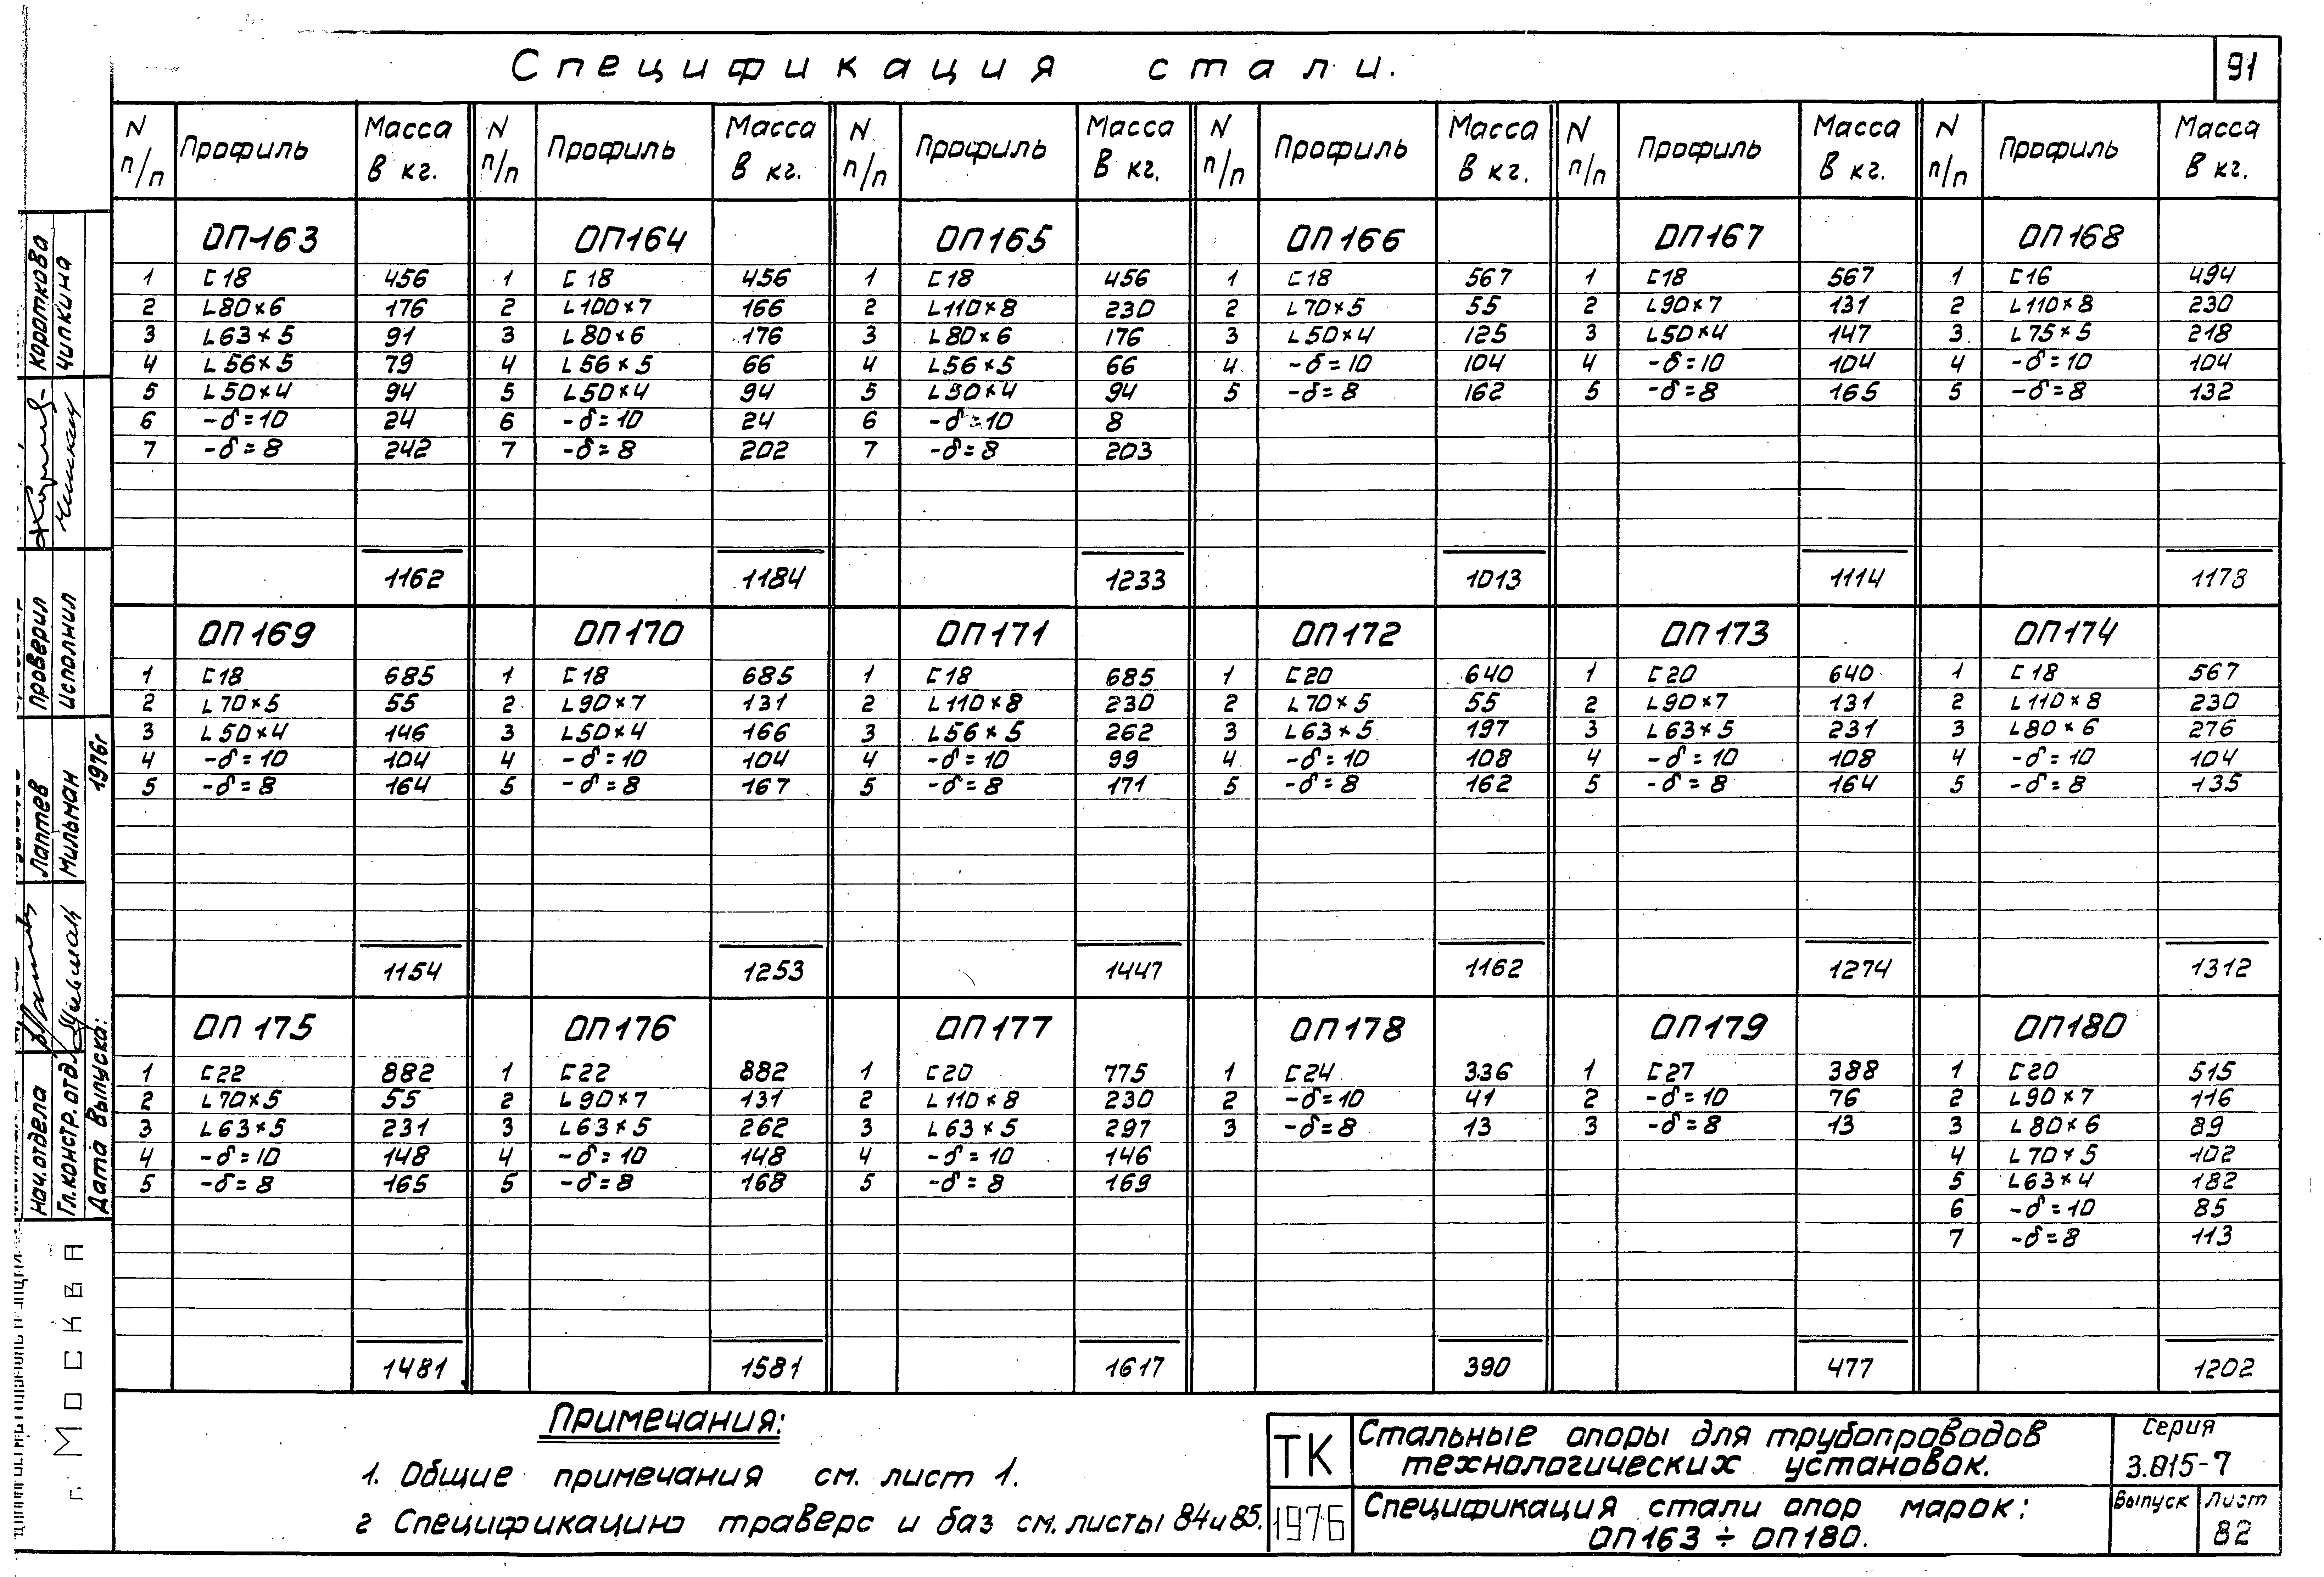 Спецификация стали.
91
N п/п Профиль Масса в кг. N п/п Профиль Масса в кг. N п/п Профиль Масса в кг. N п/п Профиль Масса в кг. N п/п Профиль Масса в кг. N п/п Профиль Масса в кг.
ОП163 ОП164 ОП165 ОП166 ОП167 ОП168
1 [18 456 1 [18 456 1 [18 456 1 [18 567 1 [18 567 1 [16 494
2 L80×6 176 2 L100×7 166 2 L110×8 230 2 L70×5 55 2 L90×7 131 2 L110×8 230
3 L63×5 91 3 L80×6 176 3 L80×6 176 3 L50×4 125 3 L50×4 147 3 L75×5 218
4 L56×5 79 4 L56×5 66 4 L56×5 66 4 -δ=10 104 4 -δ=10 104 4 -δ=10 104
5 L50×4 94 5 L50×4 94 5 L50×4 94 5 -δ=8 162 5 -δ=8 165 5 -δ=8 132
6 -δ=10 24 6 -δ=10 24 6 -δ=10 8
7 -δ=8 242 7 -δ=8 202 7 -δ=8 203
1162 1184 1233 1013 1114 1178
ОП169 ОП170 ОП171 ОП172 ОП173 ОП174
1 [18 685 1 [18 685 1 [18 685 1 [20 640 1 [20 640 1 [18 567
2 L70×5 55 2 L90×7 131 2 L110×8 230 2 L70×5 55 2 L90×7 131 2 L110×8 230
3 L50×4 146 3 L50×4 166 3 L56×5 262 3 L63×5 197 3 L63×5 231 3 L80×6 276
4 -δ=10 104 4 -δ=10 104 4 -δ=10 99 4 -δ=10 108 4 -δ=10 108 4 -δ=10 104
5 -δ=8 164 5 -δ=8 167 5 -δ=8 171 5 -δ=8 162 5 -δ=8 164 5 -δ=8 135
1154 1253 1447 1162 1274 1312
ОП175 ОП176 ОП177 ОП178 ОП179 ОП180
1 [22 882 1 [22 882 1 [20 775 1 [24 336 1 [27 388 1 [20 515
2 L70×5 55 2 L90×7 131 2 L110×8 230 2 -δ=10 41 2 -δ=10 76 2 L90×7 116
3 L63×5 231 3 L63×5 262 3 L63×5 297 3 -δ=8 13 3 -δ=8 13 3 L80×6 89
4 -δ=10 148 4 -δ=10 148 4 -δ=10 146 4 L70×5 102
5 -δ=8 165 5 -δ=8 168 5 -δ=8 169 5 L63×4 182
6 -δ=10 85
7 -δ=8 113
1481 1581 1617 390 477 1202
Примечания:
1. Общие примечания см. лист 1.
2 Спецификацию траверс и баз см. листы 84 и 85.
ТК
1976
Стальные опоры для трубопроводов
технологических установок.
Спецификация стали опор марок:
ОП163 ÷ ОП180.
Серия
3.015-7
Выпуск
Лист
82
Нач.отдела Лаптев Проверил Короткова
Гл.констр.отд. Мильман Исполнил Чипкина
Дата выпуска: 1976г
г. Москва